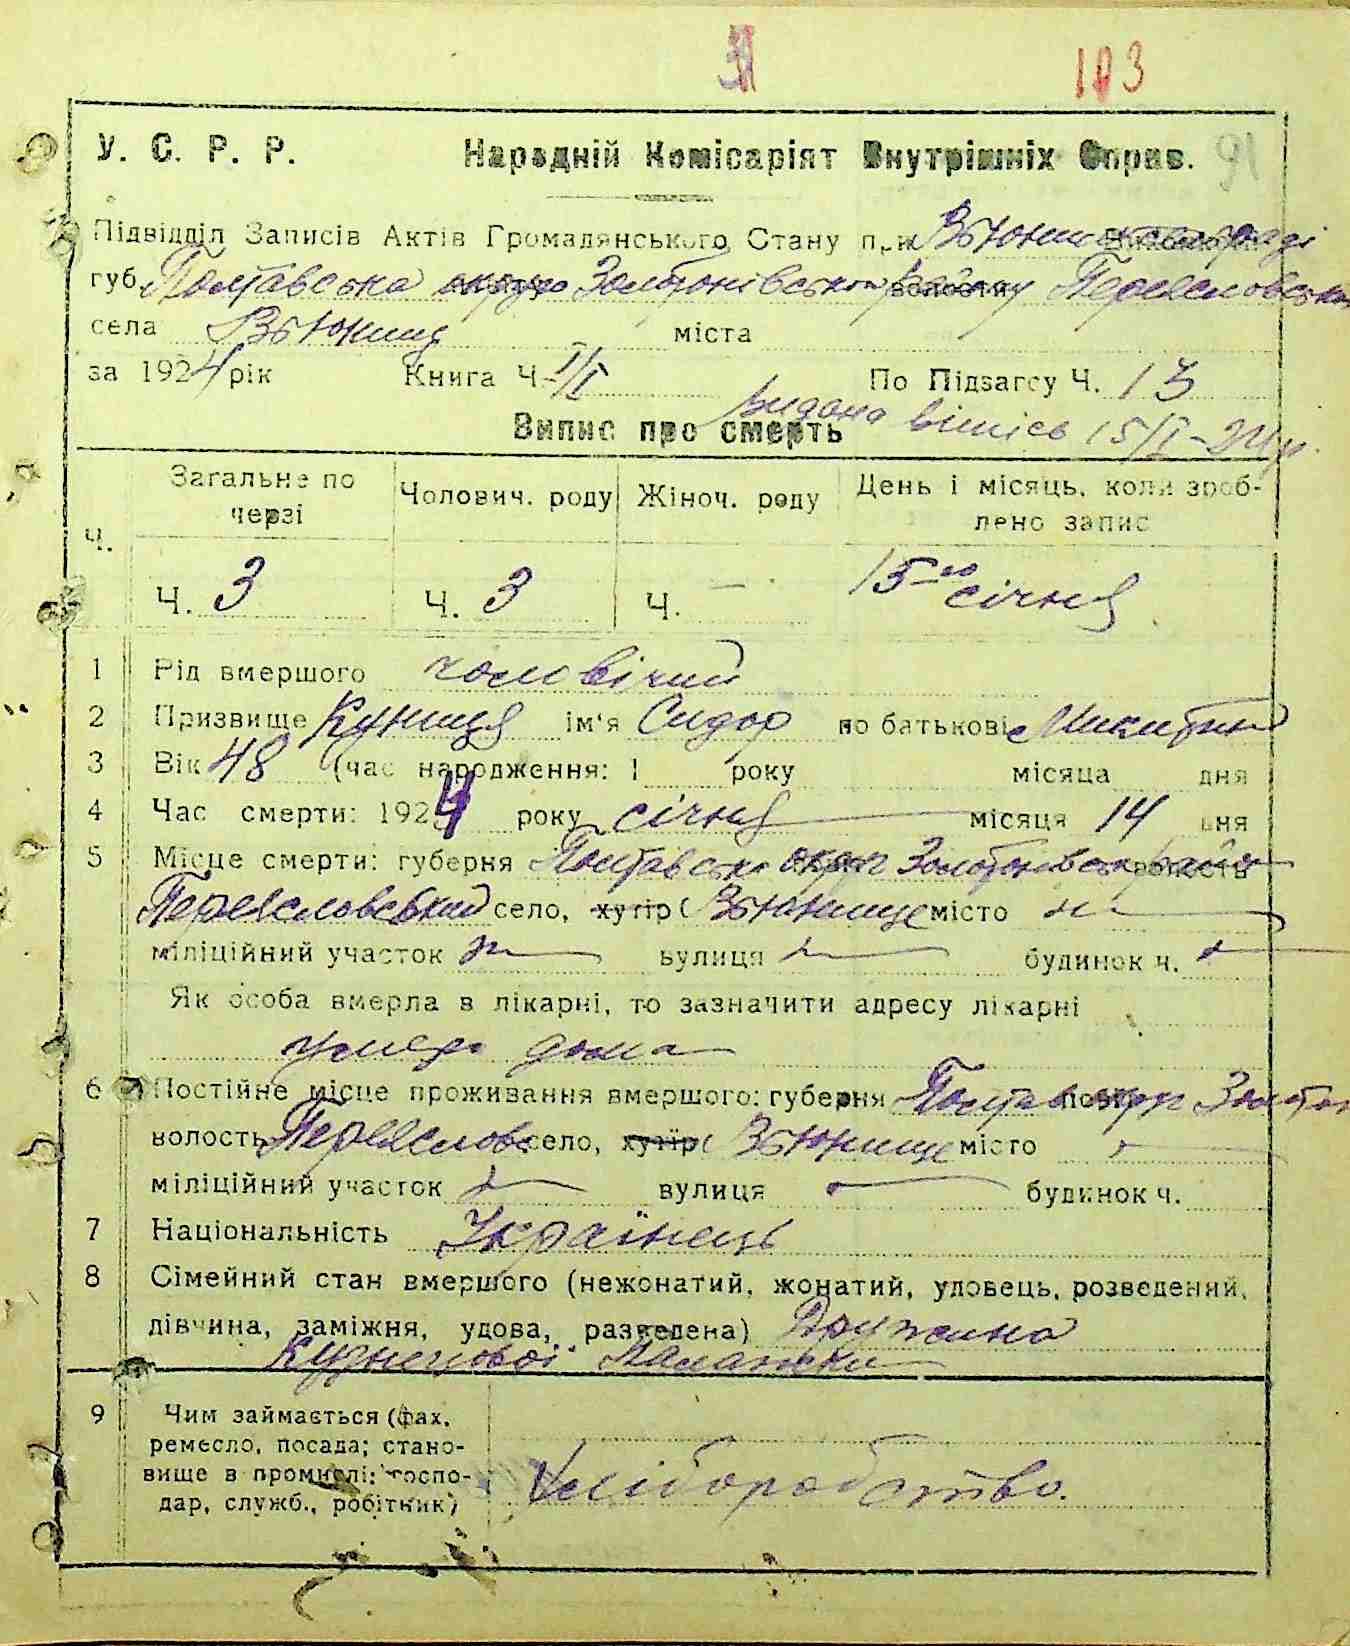 103
У. С. Р. Р. Народній Комісаріят Внутрішніх Справ. 91
Підвідділ Записів Актів Громадянського Стану при Вьюнищ раді
губ. Полтавська округ Золотонівськой району Переясловськ
села Вьюнищ міста
за 1924 рік Книга Ч. І/І По Підзагсу Ч. 13
видана випись 15/I-24 р.
Випис про смерть
Ч. Загальне по черзі Чолович. роду Жіноч. роду День і місяць, коли зроб-
лено запис
Ч. 3 Ч. 3 Ч. — 15-го січня
1 Рід вмершого чоловічий
2 Призвище Куниця ім'я Сидор по батькові Микитин
3 Вік 48 (час народження: 1 року місяца дня
4 Час смерти: 1924 року січня місяця 14 дня
5 Місце смерти: губерня Полтавська округ Золотонівськ район
Переясловський село, хутір (Вьюнище місто
міліційний участок вулиця будинок ч.
Як особа вмерла в лікарні, то зазначити адресу лікарні
умер дома
6 Постійне місце проживання вмершого: губерня Полтав окр Золотон
волость Переяслов село, хутір (Вьюнище місто
міліційний участок вулиця будинок ч.
7 Національність Українець
8 Сімейний стан вмершого (нежонатий, жонатий, удовець, розведений,
дівчина, заміжня, удова, разведена) Дружина
Кузнецової Маланки
9 Чим займається (фах,
ремесло, посада; стано-
вище в промислі: госпо-
дар, служб., робітник)
Хліборобство.